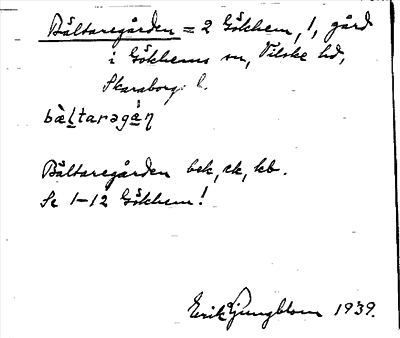 Bältaregården = 2 Gökhem, 1, gård
i Gökhems sn, Vilske hd,
Skaraborgs l.
bæ̀ltaragá̀ɳ
Bältaregården bek, ck, kb.
Se 1-12 Gökhem!
Erik Ljungblom 1939.